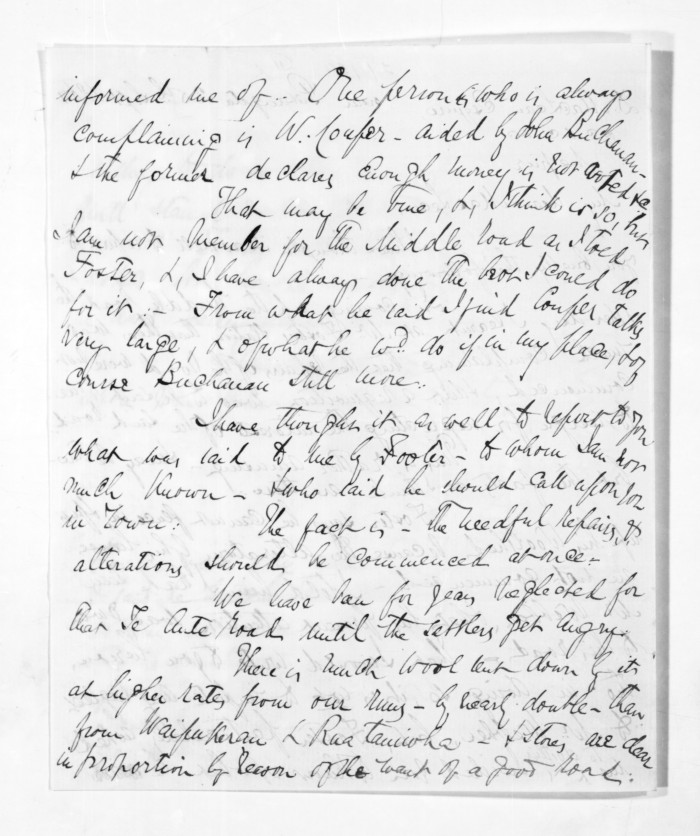 informed me of – One person is who is always
complaining is W. Couper – aided by John Buchanan –
& the former declares enough money is not voted &c
That may be true, &, I think is so, but
I am not member for the Middle Road as I told
Foster, &, I have always done the best I could do
for it :– From what he said I find Couper talks
very large, & of what he wd. do if in my place, & of
course Buchanan still more.
I have thought it as well to report to you
what was said to me by Foster – to whom I am not
much known – & who said he should call upon you
in Town. The fact is – the needful repairs, &
alterations should be commenced at once –
We have been for years neglected for
that Te Aute Road until the settlers get angry.
There is much wool sent down by it
at higher rates from our runs – by nearly double – than
from Waipukurau & Ruataniwha – & stores are dear
in proportion by reason of the want of a good road.